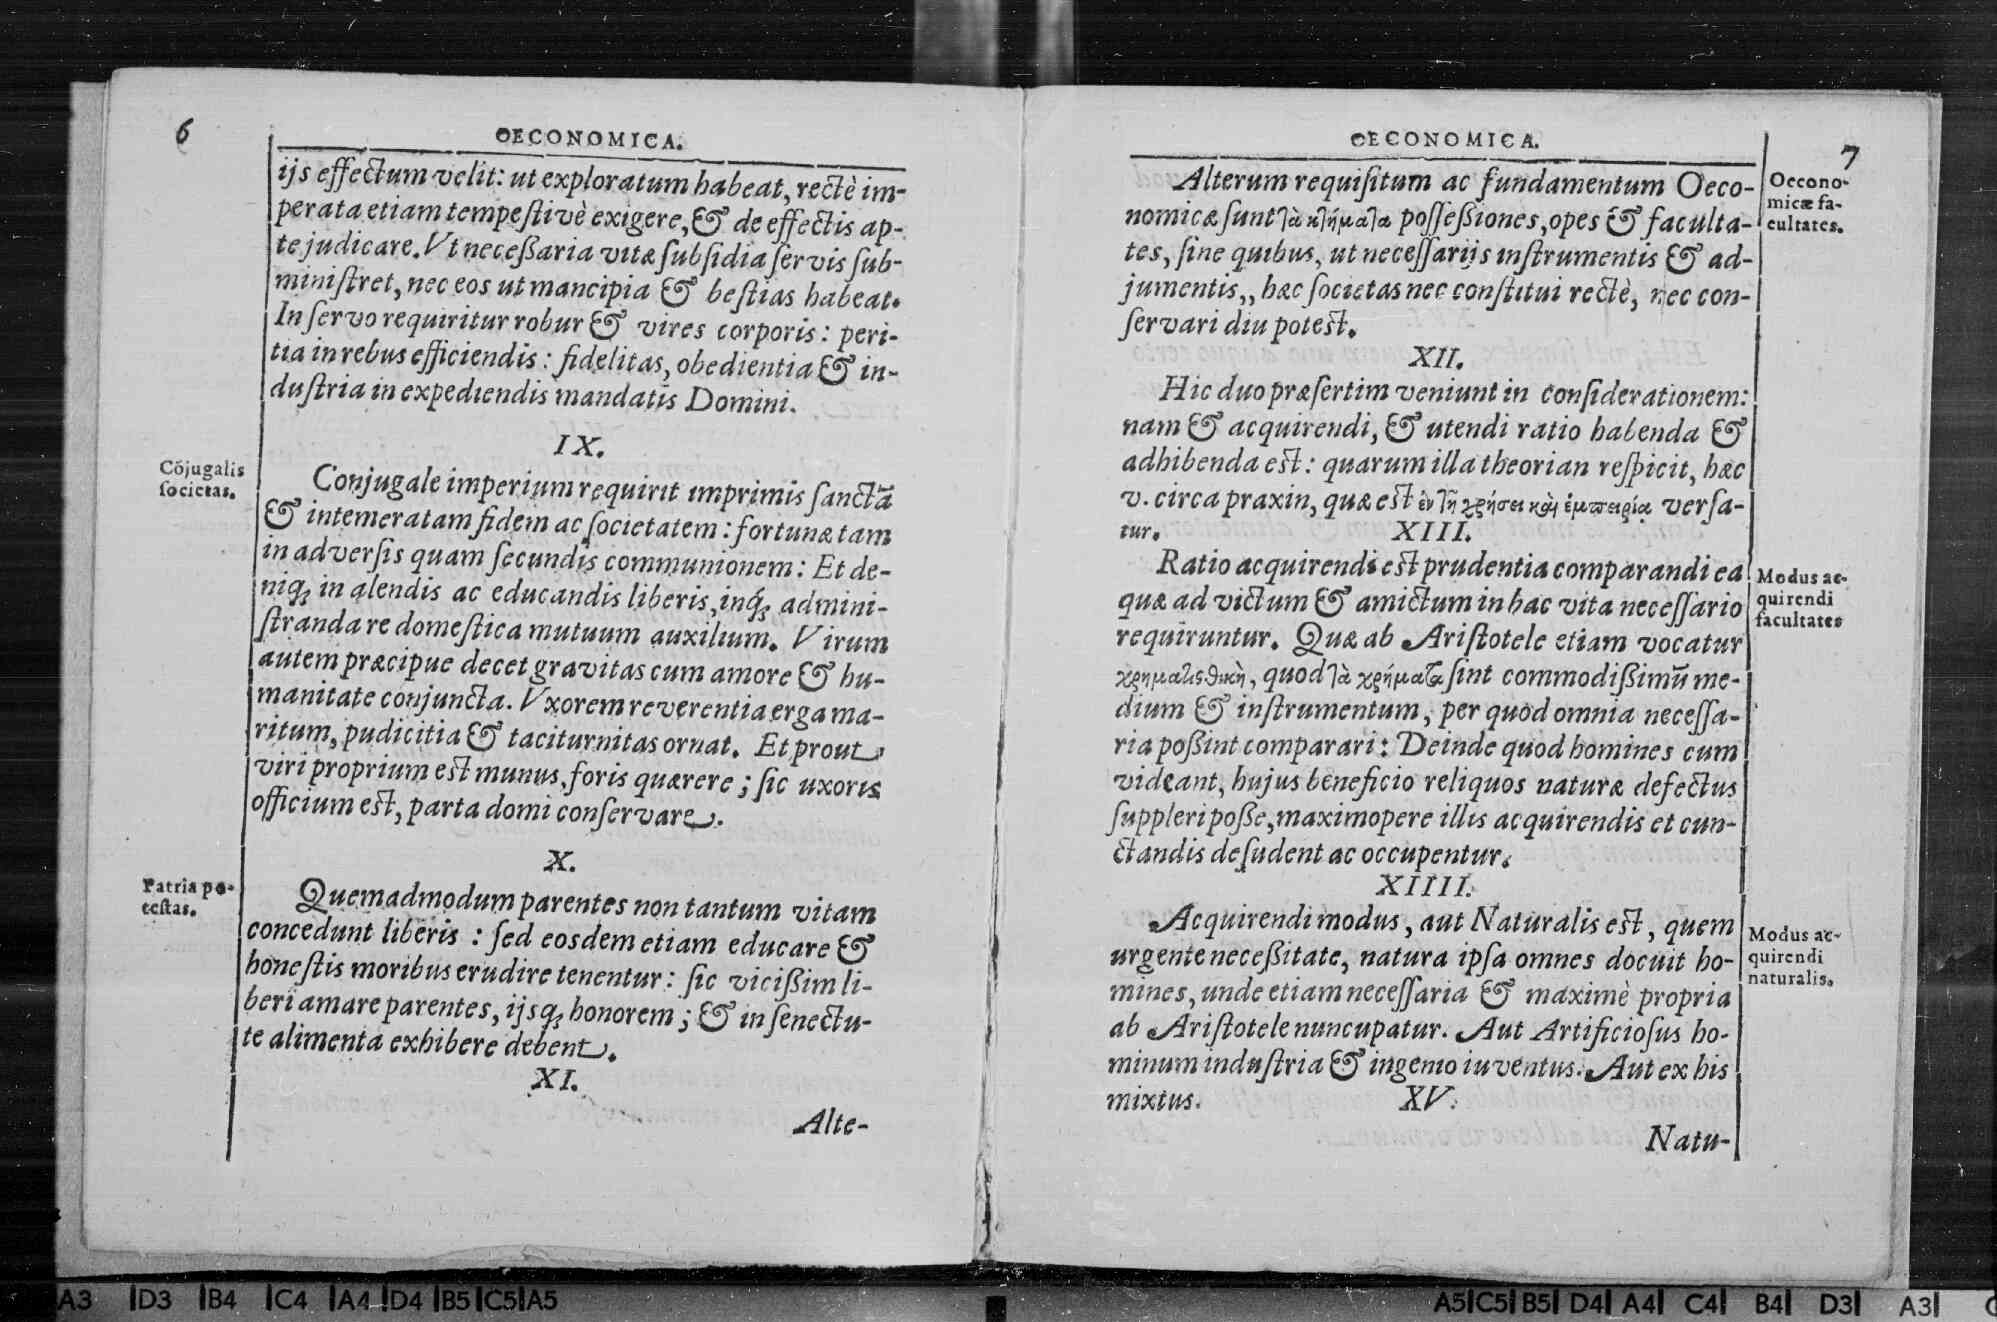 6
OECONOMICA.
ijs effectum velit: ut exploratum habeat, rectè im-
perata etiam tempeſtivè exigere, & de effectis ap-
te judicare. Vt neceßaria vitæ ſubſidia ſervis ſub-
miniſtret, nec eos ut mancipia & beſtias habeat.
In ſervo requiritur robur & vires corporis: peri-
tia in rebus efficiendis: fidelitas, obedientia & in-
duſtria in expediendis mandatis Domini.
IX.
Cõjugalis
ſocietas.
Conjugale imperium requirit imprimis ſanctã
& intemeratam fidem ac ſocietatem: fortunæ tam
in adverſis quam ſecundis communionem: Et de-
niq; in alendis ac educandis liberis, inq́; admini-
ſtranda re domeſtica mutuum auxilium. Virum
autem præcipue decet gravitas cum amore & hu-
manitate conjuncta. Vxorem reverentia erga ma-
ritum, pudicitia & taciturnitas ornat. Et prout
viri proprium est munus, foris quærere; ſic uxoris
officium est, parta domi conſervare.
X.
Patria po-
teſtas.
Quemadmodum parentes non tantum vitam
concedunt liberis: ſed eosdem etiam educare &
honeſtis moribus erudire tenentur: ſic vicißim li-
beri amare parentes, ijsq; honorem; & in ſenectu-
te alimenta exhibere debent.
XI.
Alte-
7
OECONOMICA.
Alterum requiſitum ac fundamentum Oeco-
nomicæ ſunt τὰ κτήματα poſſeßiones, opes & faculta-
tes, ſine quibus, ut neceſſariis inſtrumentis & ad-
jumentis,, hæc ſocietas nec conſtitui rectè, nec con-
ſervari diu potest.
Oecono-
micæ fa-
cultates.
XII.
Hic duo præſertim veniunt in conſiderationem:
nam & acquirendi, & utendi ratio habenda &
adhibenda est: quarum illa theorian reſpicit, hæc
v. circa praxin, quæ est ἐν τῇ χρήσει καὶ ἐμπειρίᾳ verſa-
tur.
XIII.
Ratio acquirendi est prudentia comparandi ea
quæ ad victum & amictum in hac vita neceſſario
requiruntur. Quæ ab Ariſtotele etiam vocatur
χρηματιστικὴ, quod τὰ χρήματα ſint commodißimũ me-
dium & inſtrumentum, per quod omnia neceſſa-
ria poßint comparari: Deinde quod homines cum
videant, hujus beneficio reliquos naturæ defectus
ſuppleri poße, maximopere illis acquirendis et cun-
ctandis deſudent ac occupentur.
Modus ac-
quirendi
facultates
XIIII.
Acquirendi modus, aut Naturalis est, quem
urgente neceßitate, natura ipſa omnes docuit ho-
mines, unde etiam neceſſaria & maximè propria
ab Ariſtotele nuncupatur. Aut Artificioſus ho-
minum induſtria & ingenio iuventus. Aut ex his
mixtus.
Modus ac-
quirendi
naturalis.
XV.
Natu-
A3 D3 B4 C4 A4 D4 B5 C5 A5
A5 C5 B5 D4 A4 C4 B4 D3 A3